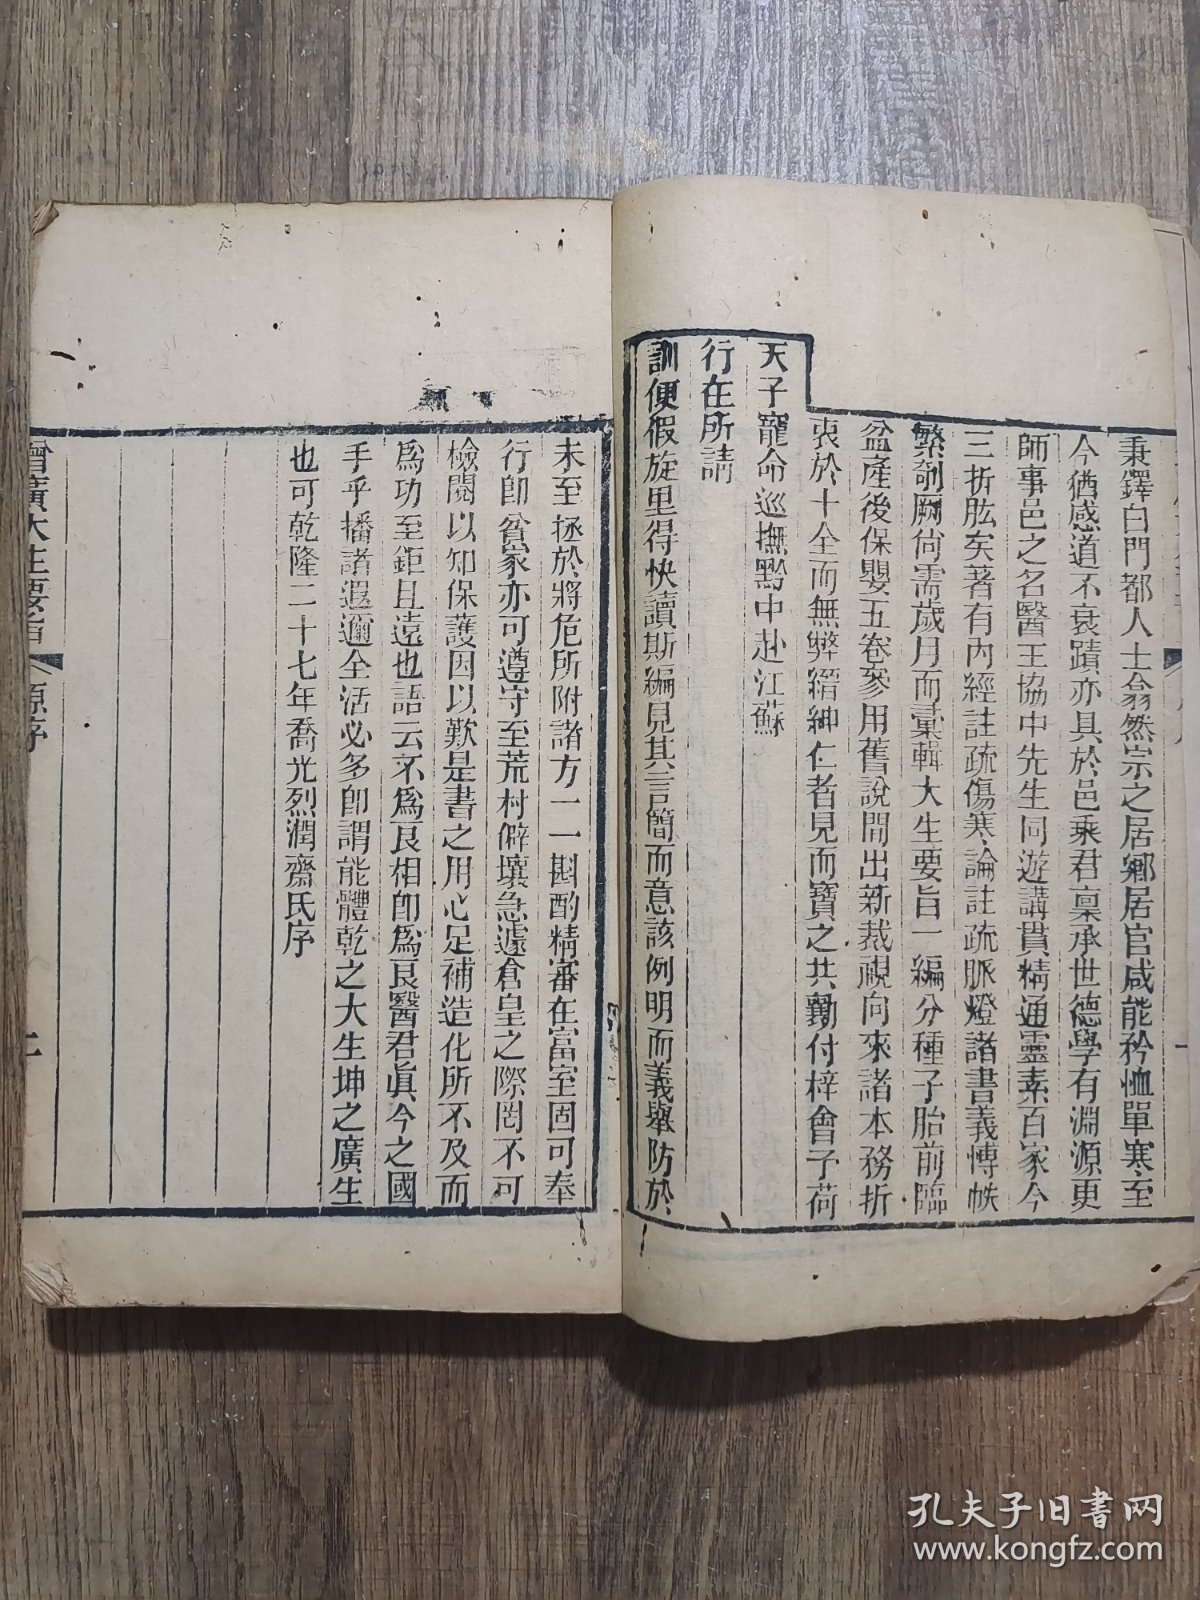 秉鐸白門都人士翕然宗之居鄉居官咸能矜恤單寒至
今猶感道不衰蹟亦具於邑乘君稟承世德學有淵源更
師事邑之名醫王協中先生同遊講貫精通靈素百家今
三折肱矣著有內經註疏傷寒論註疏脈燈諸書義博帙
繁剞劂尙需歲月而彙輯大生要旨一編分種子胎前臨
盆產後保嬰五卷參用舊說閒出新裁視向來諸本務折
衷於十全而無弊縉紳仁者見而寶之共勷付梓會予荷
天子寵命巡撫黔中赴江蘇
行在所請
訓便假旋里得快讀斯編見其言簡而意該例明而義舉防於
未至拯於將危所附諸方一一斟酌精審在富室固可奉
行卽貧家亦可遵守至荒村僻壤急遽倉皇之際罔不可
檢閱以知保護因以歎是書之用心足補造化所不及而
爲功至鉅且遠也語云不爲良相卽爲良醫君眞今之國
手乎播諸遐邇全活必多卽謂能體乾之大生坤之廣生
也可乾隆二十七年喬光烈潤齋氏序
增廣大生要旨 原序 二
孔夫子旧书网
www.kongfz.com